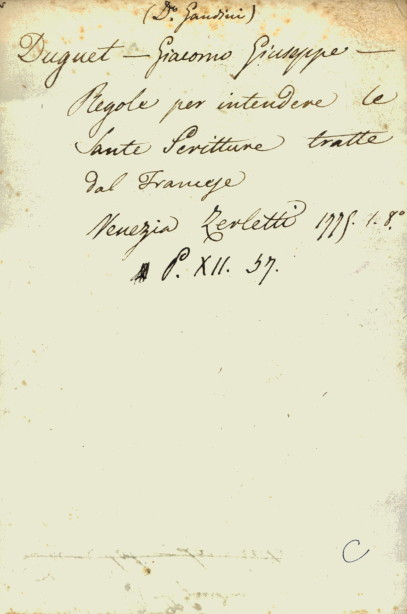 (D.º Gandini)
Duguet — Giacomo Giuseppe —
Regole per intendere le
Sante Scritture tratte
dal Francese
Venezia Zerletti 1775. 1. 8.º
P. XII. 57.
C